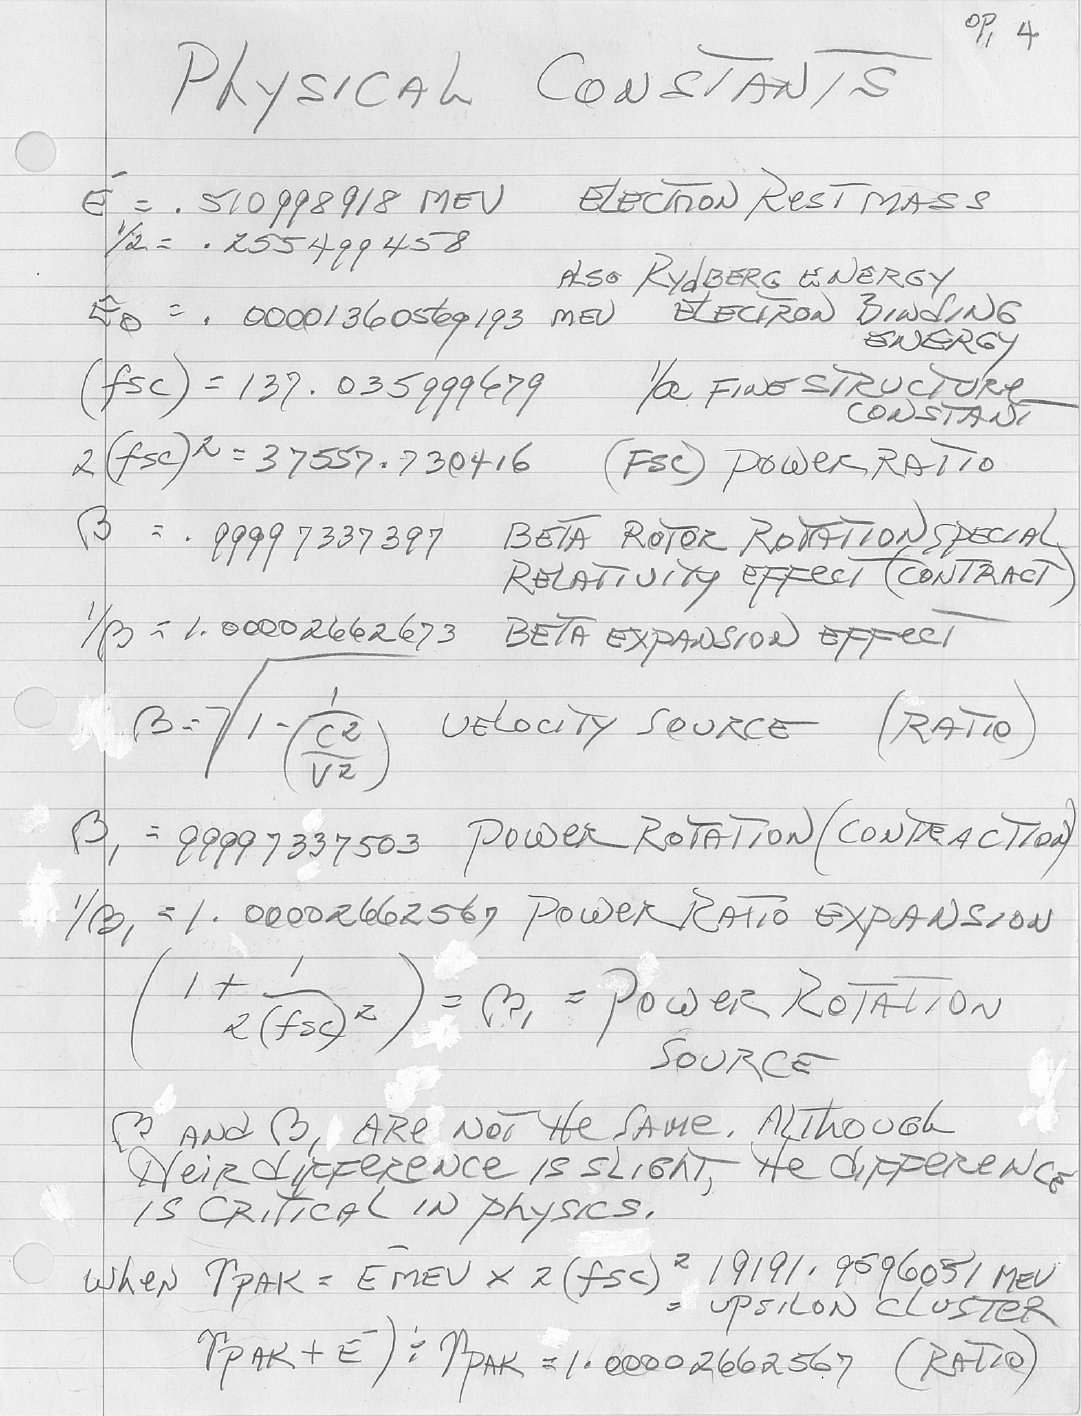 OP, 4
PhYSICAL CONSTANTS
E⁻ = .510998918 MEV ELECTRON REST MASS
1/2 = .255499458
ALSO RYdBERG ENERGY
E0 = .00001360569193 MEV ELECTRON BINdING
ENERGY
(fsc) = 137.035999679 1/α FINE STRUCTURE
CONSTANT
2(fsc)² = 37557.730416 (FSC) POWER RATIO
β = .99997337397 BETA ROTOR ROTATION SPECIAL
RELATIVITY EFFECT (CONTRACT)
1/β = 1.00002662673 BETA EXPANSION EFFECT
β = √(1 - 1/(C²/V²)) VELOCITY SOURCE (RATIO)
β₁ = 99997337503 POWER ROTATION (CONTRACTION)
1/β₁ = 1.00002662567 POWER RATIO EXPANSION
(1 + 1/2(fsc)²) = β₁ = POWER ROTATION
SOURCE
β ANd β₁ ARE NOT the SAME. ALThOUGh
their dIFFERENCE IS SLIGhT, the dIFFERENCE
IS CRITICAL IN PhYSICS.
WhEN ϒPAK = E⁻ MEV x 2(fsc)² 19191.9596051 MEV
= UPSILON CLUSTER
ϒPAK + E⁻) ÷ ϒPAK = 1.00002662567 (RATIO)